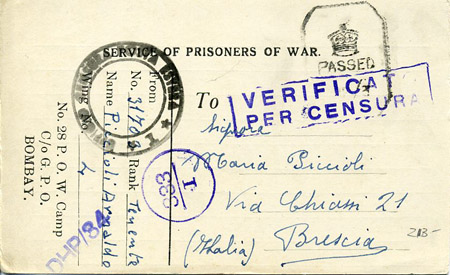 SERVICE OF PRISONERS OF WAR.
PASSED
VERIFICAT
PER CENSURA
To
Signora
Maria Piccioli
Via Chiassi 21
(Italia) Brescia
From
No. Rank Tenente
Name Piccioli Arnaldo
Wing No. 2
No. 28 P. O. W. Camp
C/o G. P. O.
BOMBAY.
DHP/84
I
S83